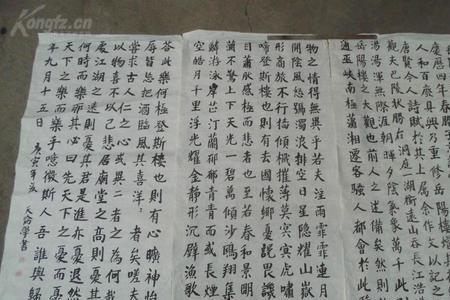 Kongfz.cn
慶曆四年春
人和百廢具興乃重修岳陽樓
唐賢今人詩賦於其上屬余作文以記之
觀夫巴陵勝狀在洞庭一湖銜遠山吞長江浩
湯湯渾無際涯朝暉夕陰氣象萬千此
岳陽樓之大觀也前人之述備矣然則
通巫峽南極瀟湘遷客騷人都會於此
物之情得無異乎若夫淫雨霏霏連月
開陰風怒號濁浪排空日星隱耀山嶽
形商旅不行檣傾楫摧薄暮冥冥虎嘯
啼登斯樓也則有去國懷鄉憂讒畏譏
目蕭然感極而悲者也至若春和景明
瀾不驚上下天光一碧萬頃沙鷗翔集
鱗游泳岸芷汀蘭郁郁青青而或長煙
空皓月千里浮光耀金靜影沉璧漁歌
答此樂何極登斯樓也則有心曠神怡
辱皆忘把酒臨風其喜洋洋者矣嗟夫
嘗求古人仁之心或異二者之為何哉
以物喜不以己悲居廟堂之高則憂
處江湖之遠則憂其君是進亦憂退
何時而樂耶其必曰先天下之憂而
天下之樂而樂乎噫微斯人吾誰與歸
年九月十五日
庚寅年 學書